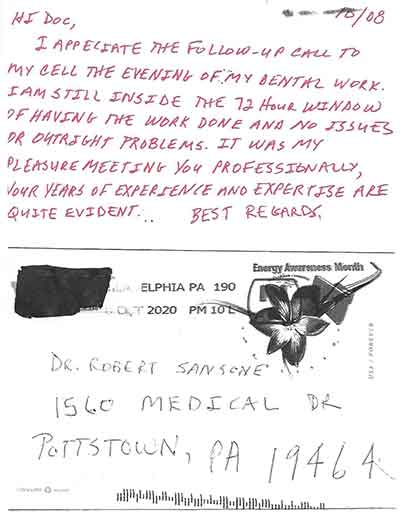 HI DOC,
10/08
I APPECIATE THE FOLLOW-UP CALL TO
MY CELL THE EVENING OF MY DENTAL WORK.
I AM STILL INSIDE THE 72 HOUR WINDOW
OF HAVING THE WORK DONE AND NO ISSUES
OR OUTRIGHT PROBLEMS. IT WAS MY
PLEASURE MEETING YOU PROFESSIONALLY,
YOUR YEARS OF EXPERIENCE AND EXPERTISE ARE
QUITE EVIDENT... BEST REGARDS,
Energy Awareness Month
ELPHIA PA 190
OCT 2020 PM 10 L
USA / FOREVER
DR. ROBERT SANSONE
1560 MEDICAL DR
POTTSTOWN, PA 19464